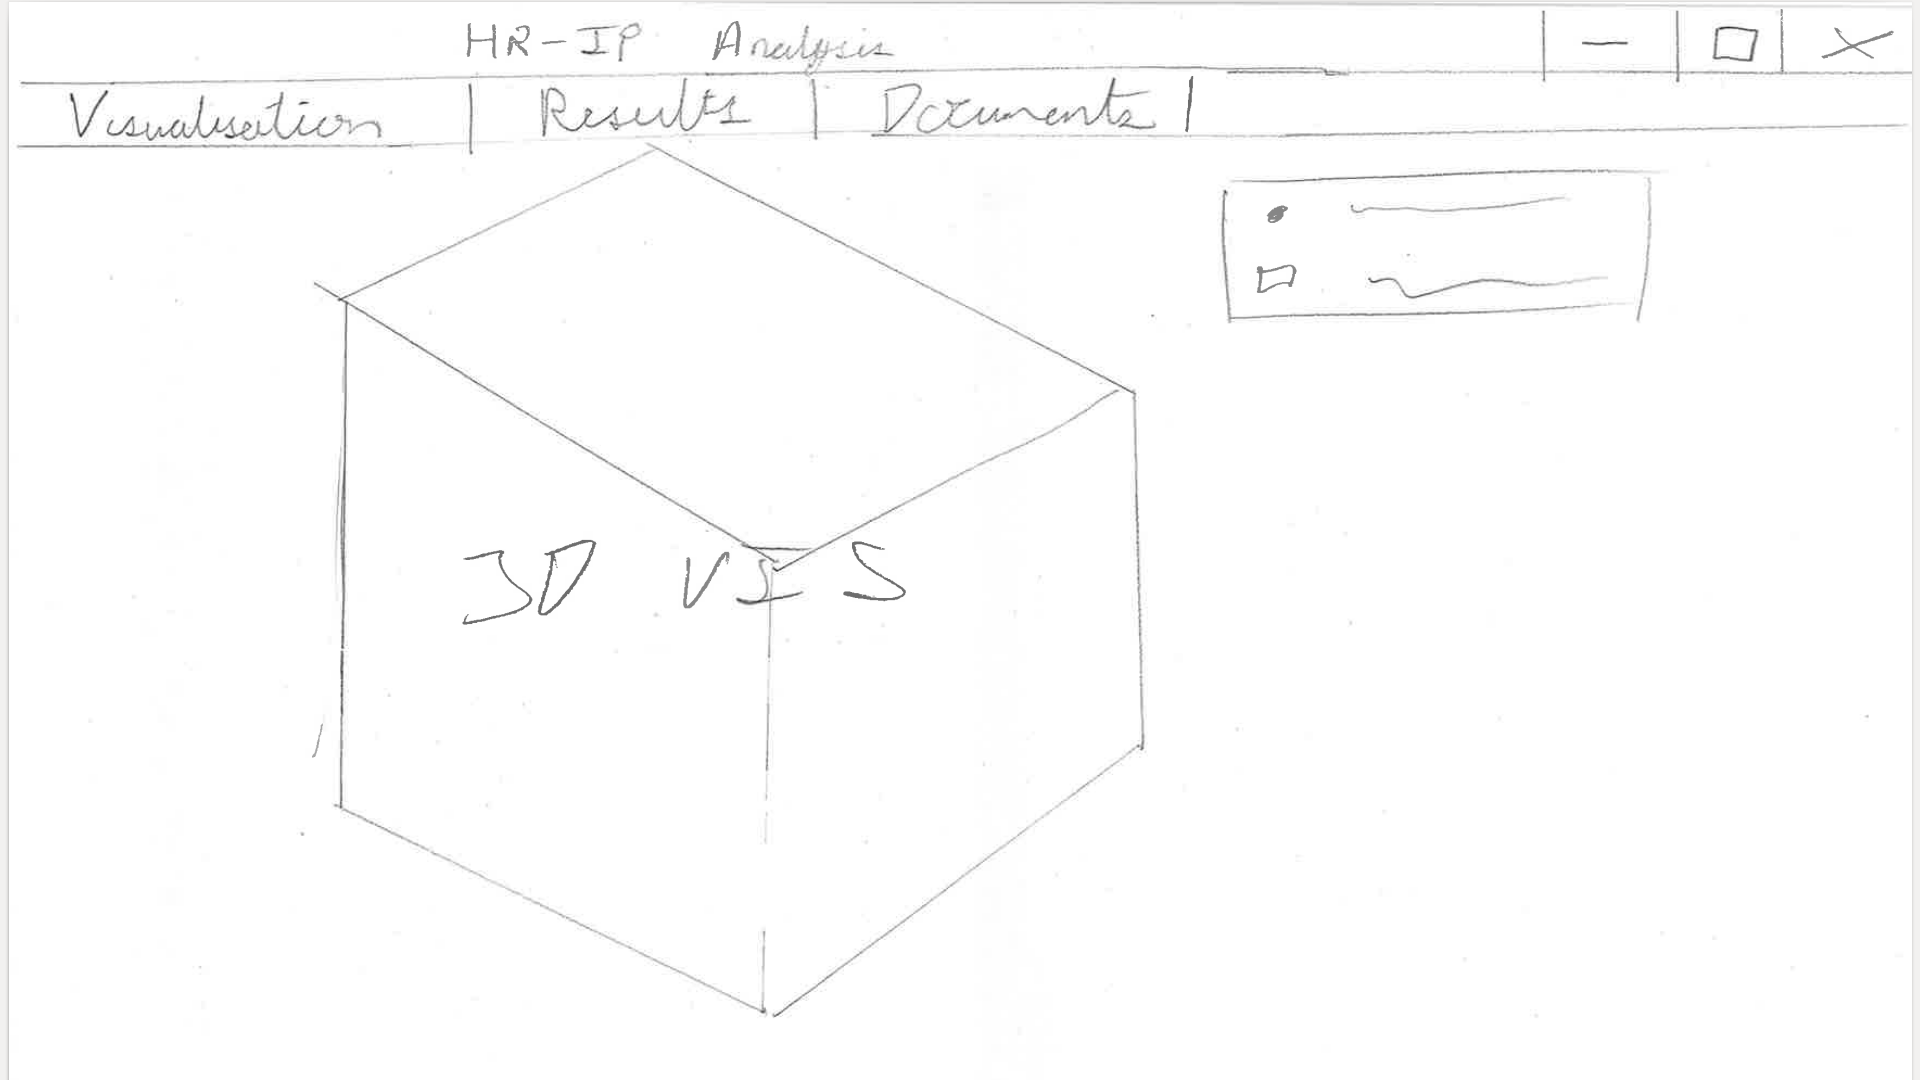 HR-IP Analysis
Visualisation Results Documents
3D VIS